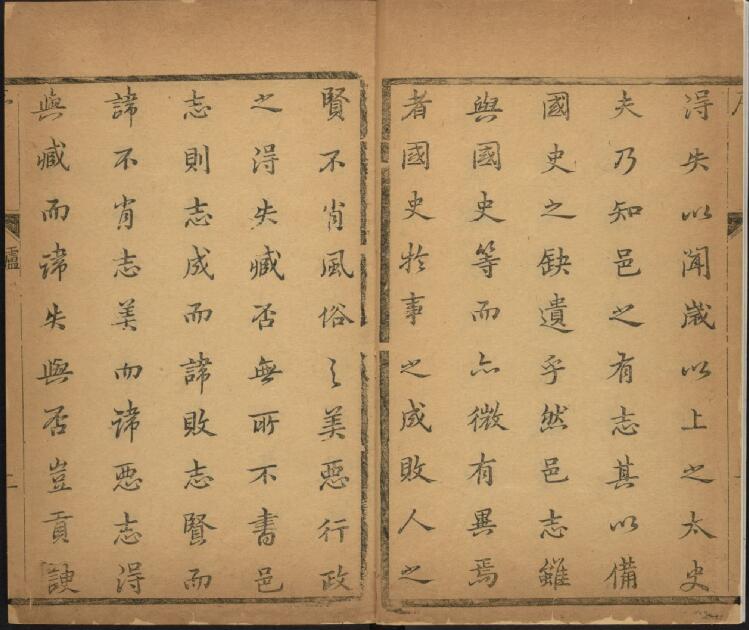 得失以聞歲以上之太史
夫乃知邑之有志其以備
國史之缺遺乎然邑志雖
與國史等而亦微有異焉
者國史於事之成敗人之
賢不肖風俗之美惡行政
之得失臧否無所不書邑
志則志成而諱敗志賢而
諱不肖志美而諱惡志得
與臧而諱失與否豈貢諛